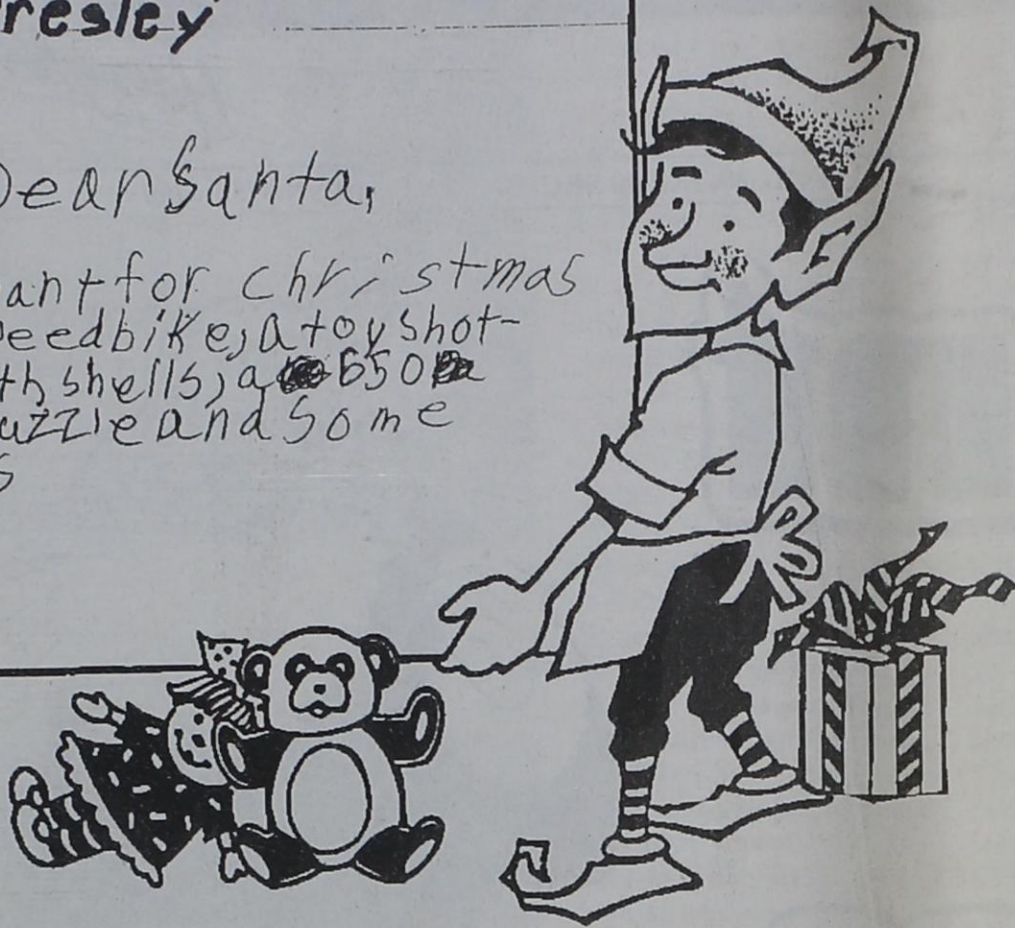 resley
Dear Santa,
ant for christmas
peed bike, a toy shot-
th shells, a 650
uzzle and some
s